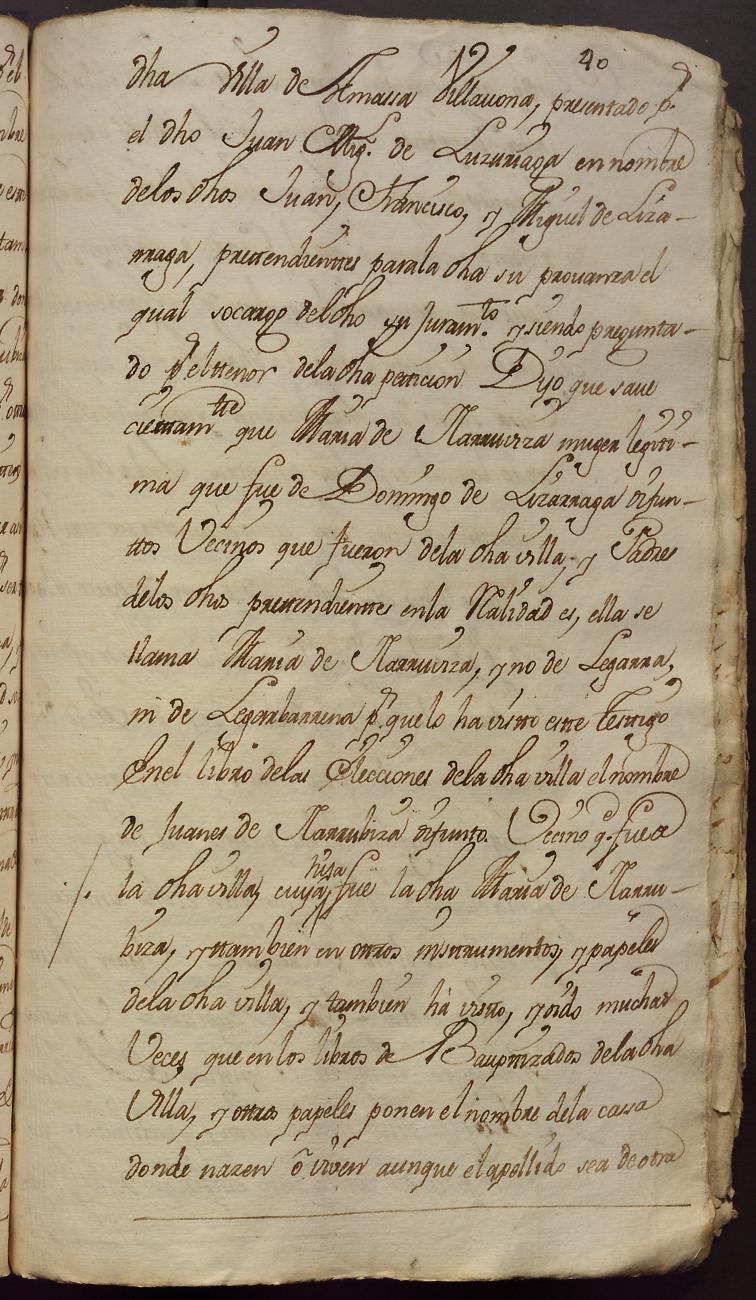 40
dha Villa de Amassa Villavona, presentado pr.
el dho Juan Migl. de Luzuriaga en nombre
delos dhos Juan, Francisco, y Miguel de Liza-
rraga, prettendienttes parala dha su provanza el
qual socargo del dho su Juramto. y siendo pregunta-
do pr el ttenor dela dha petticion Dijo que save
cierttamtte que Maria de Narruvizа muger legiti-
ma que fue de Domingo de Lizarraga difun-
ttos Vecinos que fueron dela dha villa, y Padres
delos dhos prettendientte en la Realidad es, ella se
llama Maria de Narruviza, y no de Legarra,
ni de Legarbarrena pr. que lo ha vistto este Testtigo
En el libro delas Elecciones dela dha villa el nombre
de Juanes de Narrubiza difunto. Vecino q. fue de
la dha villa, cuya hija fue la dha Maria de Narru-
biza, y ttambien en otros insttrumentos, y papeles
dela dha villa, y tambien ha vistto, y oido muchas
Veces que en los libros de Bauptizados dela dha
Villa, y ottros papeles ponen el nombre dela cassa
donde nazen ô viven aunque el apellido sea de otra